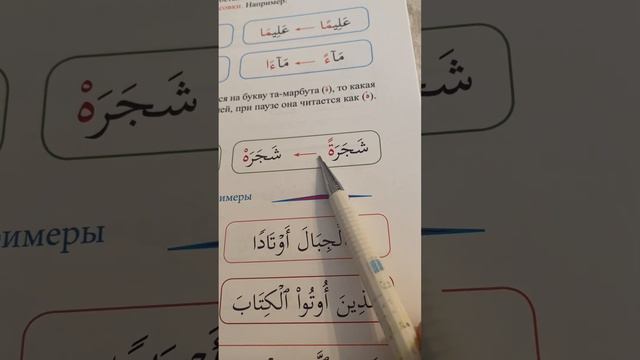 совки. Например:
عَلِيمًا ← عَلِيمَا
مَآءً ← مَآءَا
ся на букву та-марбута (ة), то какая
ей, при паузе она читается как (ه).
شَجَرَةً ← شَجَرَهْ
имеры
ٱلْجِبَالَ أَوْتَادًا
ٱلَّذِينَ أُوتُوا۟ ٱلْكِتَابَ